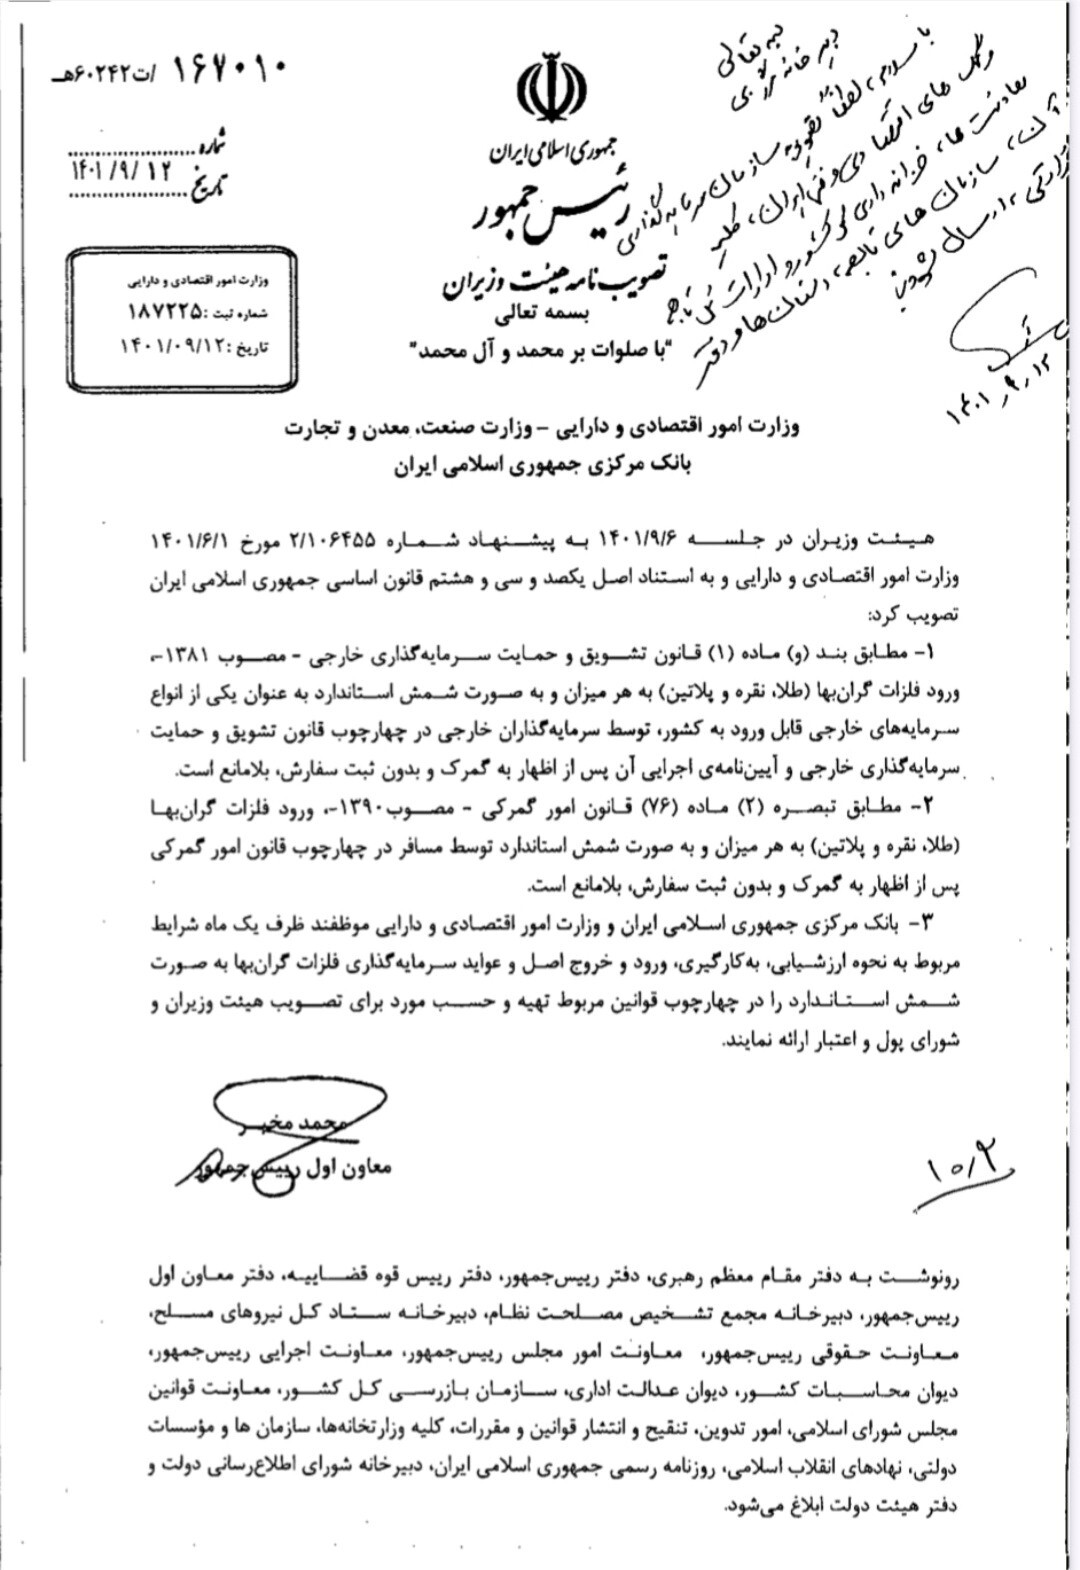 ۱۶۷۰۱۰ /ت۶۰۲۴۲هـ
شماره
تاریخ ۱۴۰۱/۹/۱۲
جمهوری اسلامی ایران
رئیس جمهور
تصویب نامه هیئت وزیران
بسمه تعالی
"با صلوات بر محمد و آل محمد"
وزارت امور اقتصادی و دارایی
شماره ثبت :۱۸۷۲۲۵
تاریخ :۱۴۰۱/۰۹/۱۲
بسمه تعالی
با سلام، لطفاً تصویر سازمان سرمایه گذاری
و کمک های اقتصادی و فنی ایران، کلیه
معاونت ها، خزانه داری کل کشور و ادارات کل تابعه
ارسال شود
۱۴۰۱،۹،۱۲
وزارت امور اقتصادی و دارایی – وزارت صنعت، معدن و تجارت
بانک مرکزی جمهوری اسلامی ایران
هیئت وزیران در جلسه ۱۴۰۱/۹/۶ به پیشنهاد شماره ۲/۱۰۶۴۵۵ مورخ ۱۴۰۱/۶/۱
وزارت امور اقتصادی و دارایی و به استناد اصل یکصد و سی و هشتم قانون اساسی جمهوری اسلامی ایران
تصویب کرد:
۱- مطابق بند (و) ماده (۱) قانون تشویق و حمایت سرمایه‌گذاری خارجی - مصوب ۱۳۸۱-،
ورود فلزات گران‌بها (طلا، نقره و پلاتین) به هر میزان و به صورت شمش استاندارد به عنوان یکی از انواع
سرمایه‌های خارجی قابل ورود به کشور، توسط سرمایه‌گذاران خارجی در چهارچوب قانون تشویق و حمایت
سرمایه‌گذاری خارجی و آیین‌نامه‌ی اجرایی آن پس از اظهار به گمرک و بدون ثبت سفارش، بلامانع است.
۲- مطابق تبصره (۲) ماده (۷۶) قانون امور گمرکی - مصوب۱۳۹۰-، ورود فلزات گران‌بها
(طلا، نقره و پلاتین) به هر میزان و به صورت شمش استاندارد توسط مسافر در چهارچوب قانون امور گمرکی
پس از اظهار به گمرک و بدون ثبت سفارش، بلامانع است.
۳- بانک مرکزی جمهوری اسلامی ایران و وزارت امور اقتصادی و دارایی موظفند ظرف یک ماه شرایط
مربوط به نحوه ارزشیابی، به‌کارگیری، ورود و خروج اصل و عواید سرمایه‌گذاری فلزات گران‌بها به صورت
شمش استاندارد را در چهارچوب قوانین مربوط تهیه و حسب مورد برای تصویب هیئت وزیران و
شورای پول و اعتبار ارائه نمایند.
محمد مخبر
معاون اول رییس‌جمهور
۱۰/۲
رونوشت به دفتر مقام معظم رهبری، دفتر رییس‌جمهور، دفتر رییس قوه قضاییه، دفتر معاون اول
رییس‌جمهور، دبیرخانه مجمع تشخیص مصلحت نظام، دبیرخانه ستاد کل نیروهای مسلح،
معاونت حقوقی رییس‌جمهور، معاونت امور مجلس رییس‌جمهور، معاونت اجرایی رییس‌جمهور،
دیوان محاسبات کشور، دیوان عدالت اداری، سازمان بازرسی کل کشور، معاونت قوانین
مجلس شورای اسلامی، امور تدوین، تنقیح و انتشار قوانین و مقررات، کلیه وزارتخانه‌ها، سازمان ها و مؤسسات
دولتی، نهادهای انقلاب اسلامی، روزنامه رسمی جمهوری اسلامی ایران، دبیرخانه شورای اطلاع‌رسانی دولت و
دفتر هیئت دولت ابلاغ می‌شود.